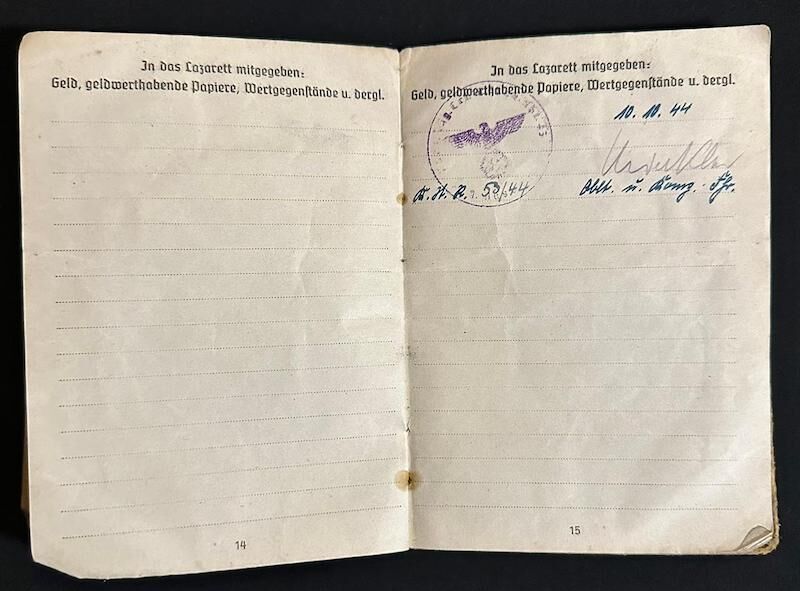 In das Lazarett mitgegeben:
Geld, geldwerthabende Papiere, Wertgegenstände u. dergl.
14
In das Lazarett mitgegeben:
Geld, geldwerthabende Papiere, Wertgegenstände u. dergl.
10. 10. 44
53/44
Oblt. u. Komp. Fhr.
15